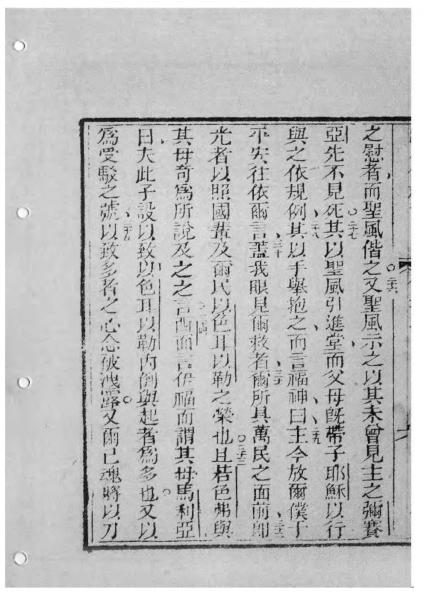 之慰者而聖風偕之又聖風示之以其未曾見主之彌賽
亞先不見死其以聖風引進堂而父母既帶子耶穌以行
與之依規例其以手舉抱之而言福神曰主今放爾僕于
平安徃依爾言蓋我眼見爾救者爾所具萬民之面前即
光者以照國輩及爾民以色耳以勒之榮也且若色弗與
其母奇為所說及之之言西面言伊福而謂其母馬利亞
曰夫此子設以致以色耳以勒內倒與起者為多也又以
為受駁之號以致多者之心念被洩露又爾己魂將以刀